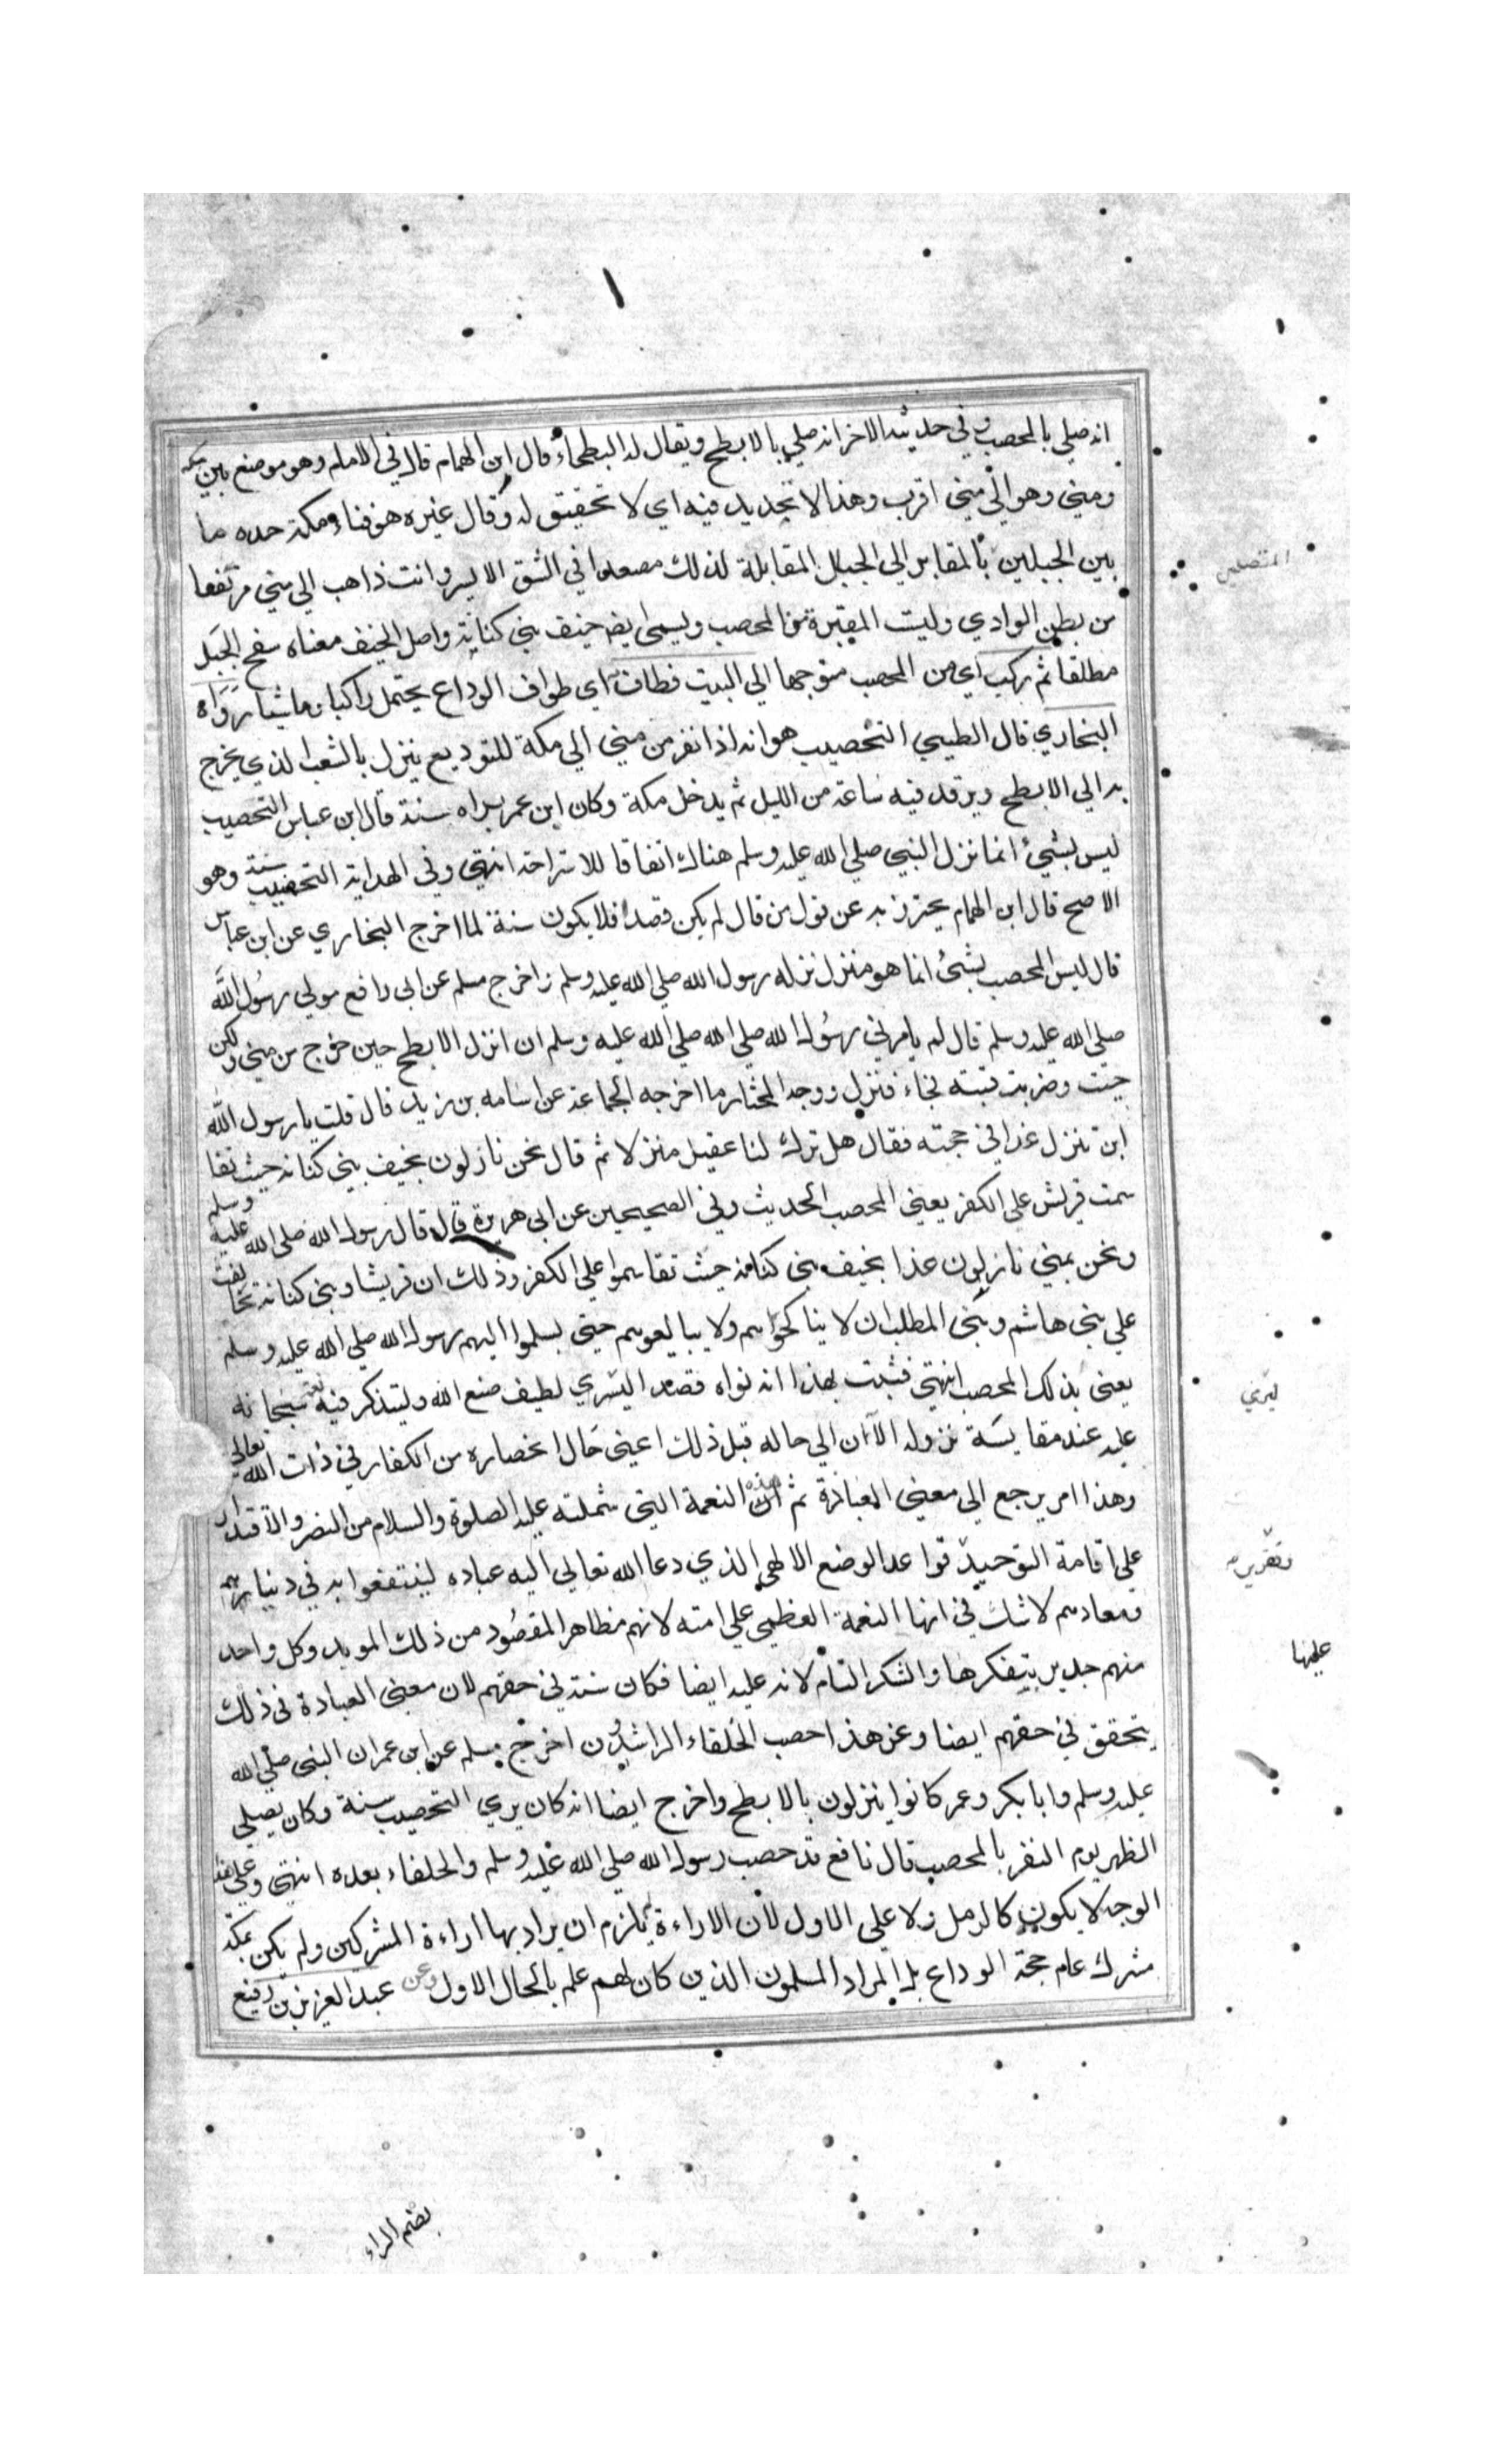 انه صلي بالمحصب وفي حديثه الاخر انه صلي بالابطح ويقال له البطحاء قال ابن الهمام قال في الامام وهو موضع بين مكه
ومني وهو الي مني اقرب وهذا لا تحديد فيه اي لا تحقيق له وقال غيره هو فناء مكة حده ما
بين الجبلين بالمقابر الي الجبال المقابلة لذلك مصعدا في الشق الايسر وانت ذاهب الي مني مرتفعا
من بطن الوادي وليست المقبرة من المحصب ويسمي ايضا خيف بني كنانة واصل الخيف معناه سفح الجبل
مطلقا ثم ركب اي من المحصب متوجها الي البيت فطاف اي طواف الوداع يحتمل راكبا وماشيا رواه
البخاري قال الطيبي التحصيب هو انه اذا نفر من مني الي مكة للتوديع ينزل بالشعب الذي يخرج
به الي الابطح ويرقد فيه ساعة من الليل ثم يدخل مكة وكان ابن عمر يراه سنة قال ابن عباس التحصيب
ليس بشيء انما نزل النبي صلي الله عليه وسلم هناك اتفاقا للاستراحة انتهي وفي الهداية التحصيب سنة وهو
الاصح قال ابن الهمام يحترز به عن قول من قال لم يكن قصدا فلا يكون سنة لما اخرج البخاري عن ابن عباس
قال ليس المحصب بشيء انما هو منزل نزله رسول الله صلي الله عليه وسلم واخرج مسلم عن ابي رافع مولي رسول الله
صلي الله عليه وسلم قال لم يامرني رسول الله صلي الله صلي الله عليه وسلم ان انزل الابطح حين خرج من مني ولكن
جئت وضربت قبته فجاء فنزل ووجه المختار ما اخرجه الجماعة عن اسامه بن زيد قال قلت يا رسول الله
اين تنزل غدا في حجته فقال هل ترك لنا عقيل منزلا ثم قال نحن نازلون بخيف بني كنانه حيث تقا
سمت قريش علي الكفر يعني المحصب الحديث وفي الصحيحين عن ابي هريرة قال قال رسول الله صلي الله عليه وسلم
ونحن بمني نازلون غدا بخيف بني كنانة حيث تقاسموا علي الكفر وذلك ان قريشا وبني كنانة تحالفت
علي بني هاشم وبني المطلب ان لا يناكحوهم ولا يبايعوهم حتي يسلموا اليهم رسول الله صلي الله عليه وسلم
يعني بذلك المحصب انتهي فثبت بهذا انه نواه قصدا ليري لطيف صنع الله وليتذكر فيه نعمه سبحانه
عليه عند مقايسة نزوله الآن الي حاله قبل ذلك اعني حال انحصاره من الكفار في ذات الله تعالي
وهذا امر يرجع الي معني العبادة ثم هذه النعمة التي شملته عليه الصلوة والسلام من النصر والاقتدار
علي اقامة التوحيد قواعد الوضع الالهي الذي دعا الله تعالي اليه عباده لينتفعوا به في دنياهم
ومعادهم لا شك في انها النعمة العظمي علي امته لانهم مظاهر المقصود من ذلك المويد وكل واحد
منهم جدير بتفكرها والشكر التام لانه عليه ايضا فكان سنة في حقهم لان معني العبادة في ذلك
يتحقق في حقهم ايضا وعن هذا حصب الخلفاء الراشدون اخرج مسلم عن ابن عمر ان النبي صلي الله
عليه وسلم وابا بكر وعمر كانوا ينزلون بالابطح واخرج ايضا انه كان يري التحصيب سنة وكان يصلي
الظهر يوم النفر بالمحصب قال نافع قد حصب رسول الله صلي الله عليه وسلم والخلفاء بعده انتهي وعلي هذا
الوجه لا يكون كالرمل ولا علي الاول لان الاراءة يلزم ان يراد بها اراءة المشركين ولم يكن بمكة
مشرك عام حجة الوداع بل المراد المسلمون الذين كان لهم علم بالحال الاول وعن عبد العزيز بن رفيع
ليري
تقرير
عليها
بضم الراء